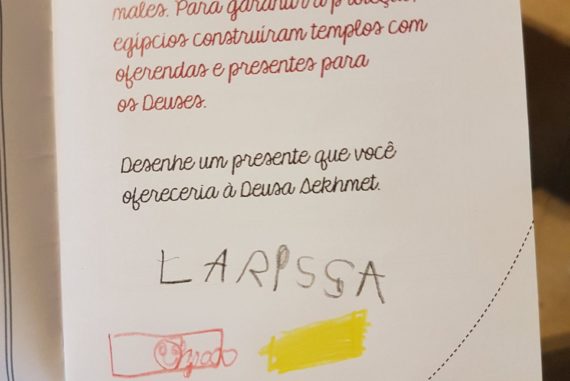 males. Para garantir a proteção,
egípcios construíram templos com
oferendas e presentes para
os Deuses.
Desenhe um presente que você
ofereceria à Deusa Sekhmet.
LARISSA